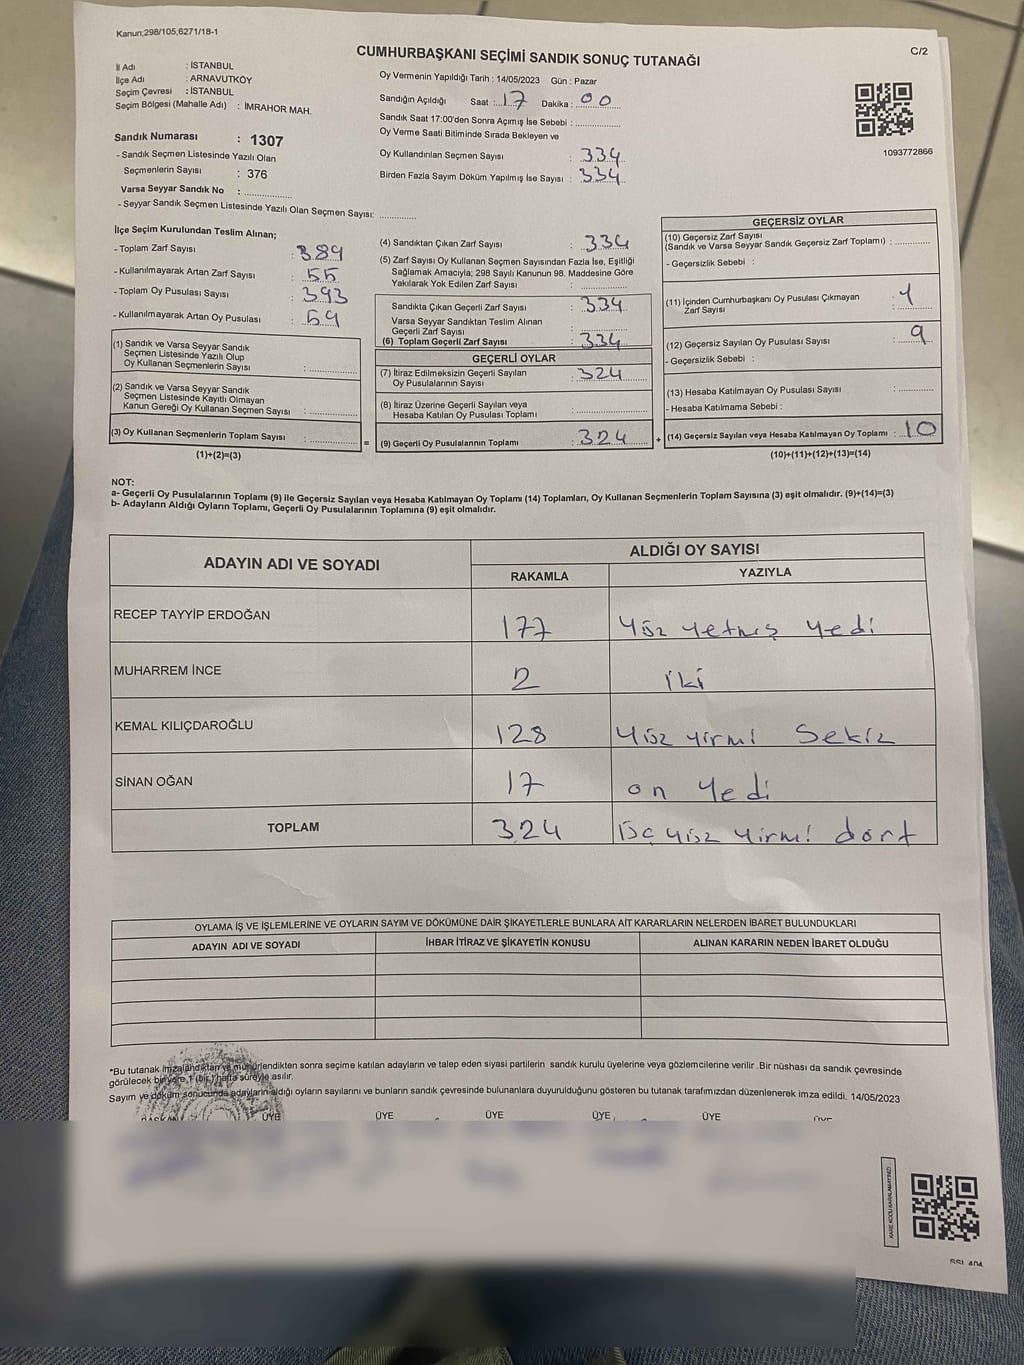 Kanun;298/105,6271/18-1
C/2
CUMHURBAŞKANI SEÇİMİ SANDIK SONUÇ TUTANAĞI
İl Adı : İSTANBUL
İlçe Adı : ARNAVUTKÖY
Seçim Çevresi : İSTANBUL
Seçim Bölgesi (Mahalle Adı) : İMRAHOR MAH.
Sandık Numarası : 1307
- Sandık Seçmen Listesinde Yazılı Olan
Seçmenlerin Sayısı : 376
Varsa Seyyar Sandık No :
- Seyyar Sandık Seçmen Listesinde Yazılı Olan Seçmen Sayısı:
Oy Vermenin Yapıldığı Tarih : 14/05/2023 Gün : Pazar
Sandığın Açıldığı Saat : 17 Dakika : 00
Sandık Saat 17:00'den Sonra Açımış İse Sebebi :
Oy Verme Saati Bitiminde Sırada Bekleyen ve
Oy Kullandırılan Seçmen Sayısı : 334
Birden Fazla Sayım Döküm Yapılmış İse Sayısı : 334
1093772866
İlçe Seçim Kurulundan Teslim Alınan;
- Toplam Zarf Sayısı : 389
- Kullanılmayarak Artan Zarf Sayısı : 55
- Toplam Oy Pusulası Sayısı : 393
- Kullanılmayarak Artan Oy Pusulası : 59
(1) Sandık ve Varsa Seyyar Sandık
Seçmen Listesinde Yazılı Olup
Oy Kullanan Seçmenlerin Sayısı :
(2) Sandık ve Varsa Seyyar Sandık
Seçmen Listesinde Kayıtlı Olmayan
Kanun Gereği Oy Kullanan Seçmen Sayısı :
(3) Oy Kullanan Seçmenlerin Toplam Sayısı :
(1)+(2)=(3)
(4) Sandıktan Çıkan Zarf Sayısı : 334
(5) Zarf Sayısı Oy Kullanan Seçmen Sayısından Fazla İse, Eşitliği
Sağlamak Amacıyla; 298 Sayılı Kanunun 98. Maddesine Göre
Yakılarak Yok Edilen Zarf Sayısı :
Sandıkta Çıkan Geçerli Zarf Sayısı : 334
Varsa Seyyar Sandıktan Teslim Alınan
Geçerli Zarf Sayısı :
(6) Toplam Geçerli Zarf Sayısı : 334
GEÇERLİ OYLAR
(7) İtiraz Edilmeksizin Geçerli Sayılan
Oy Pusulalarının Sayısı : 324
(8) İtiraz Üzerine Geçerli Sayılan veya
Hesaba Katılan Oy Pusulası Toplamı :
= (9) Geçerli Oy Pusulalarının Toplamı : 324
GEÇERSİZ OYLAR
(10) Geçersiz Zarf Sayısı
(Sandık ve Varsa Seyyar Sandık Geçersiz Zarf Toplamı) :
- Geçersizlik Sebebi :
(11) İçinden Cumhurbaşkanı Oy Pusulası Çıkmayan
Zarf Sayısı : 1
(12) Geçersiz Sayılan Oy Pusulası Sayısı : 9
- Geçersizlik Sebebi :
(13) Hesaba Katılmayan Oy Pusulası Sayısı :
- Hesaba Katılmama Sebebi :
+ (14) Geçersiz Sayılan veya Hesaba Katılmayan Oy Toplamı : 10
(10)+(11)+(12)+(13)=(14)
NOT:
a- Geçerli Oy Pusulalarının Toplamı (9) ile Geçersiz Sayılan veya Hesaba Katılmayan Oy Toplamı (14) Toplamları, Oy Kullanan Seçmenlerin Toplam Sayısına (3) eşit olmalıdır. (9)+(14)=(3)
b- Adayların Aldığı Oyların Toplamı, Geçerli Oy Pusulalarının Toplamına (9) eşit olmalıdır.
ADAYIN ADI VE SOYADI ALDIĞI OY SAYISI
RAKAMLA YAZIYLA
RECEP TAYYİP ERDOĞAN 177 Yüz yetmiş yedi
MUHARREM İNCE 2 iki
KEMAL KILIÇDAROĞLU 128 Yüz yirmi Sekiz
SİNAN OĞAN 17 on yedi
TOPLAM 324 üç yüz yirmi dört
OYLAMA İŞ VE İŞLEMLERİNE VE OYLARIN SAYIM VE DÖKÜMÜNE DAİR ŞİKAYETLERLE BUNLARA AİT KARARLARIN NELERDEN İBARET BULUNDUKLARI
ADAYIN ADI VE SOYADI İHBAR İTİRAZ VE ŞİKAYETİN KONUSU ALINAN KARARIN NEDEN İBARET OLDUĞU
*Bu tutanak imzalandıktan ve mühürlendikten sonra seçime katılan adayların ve talep eden siyasi partilerin sandık kurulu üyelerine veya gözlemcilerine verilir .Bir nüshası da sandık çevresinde
görülecek bir yere 1 (bir) hafta süreyle asılır.
Sayım ve döküm sonucunda adayların aldığı oyların sayılarını ve bunların sandık çevresinde bulunanlara duyurulduğunu gösteren bu tutanak tarafımızdan düzenlenerek imza edildi. 14/05/2023
BAŞKAN ÜYE ÜYE ÜYE ÜYE ÜYE ÜYE
KARE KODU KARALAMAYINIZ!